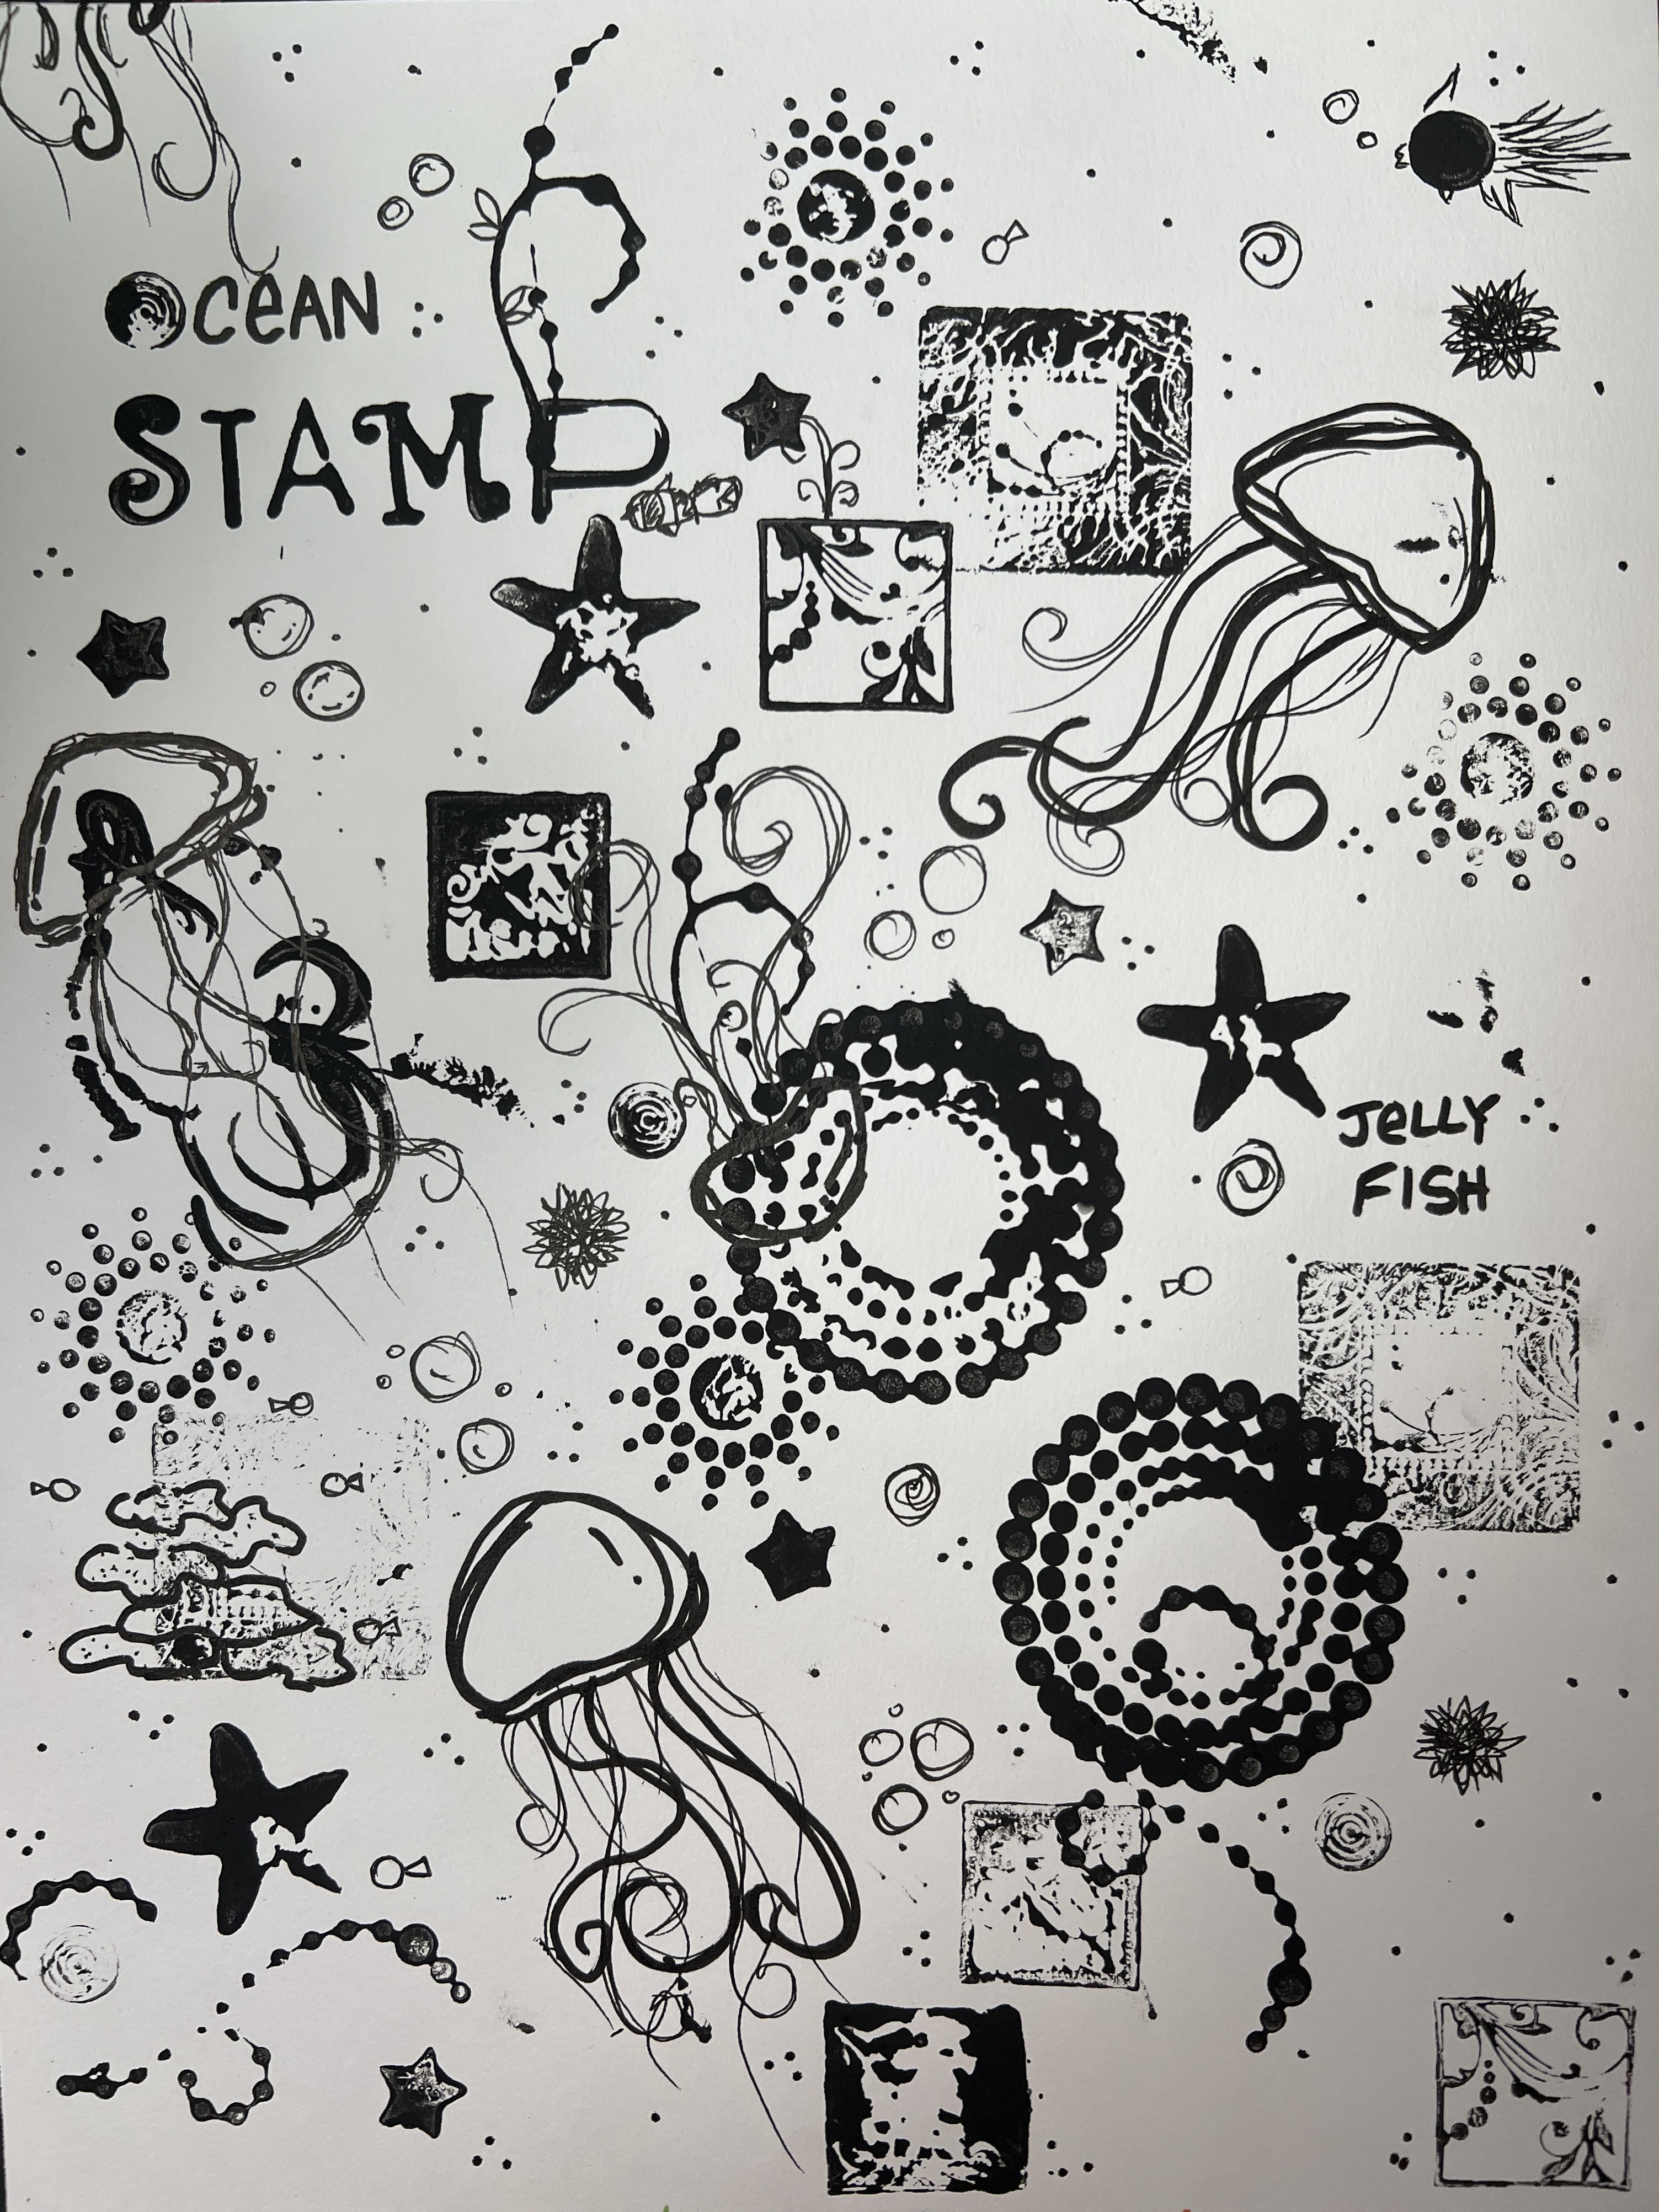 OCEAN
STAMP
JELLY
FISH